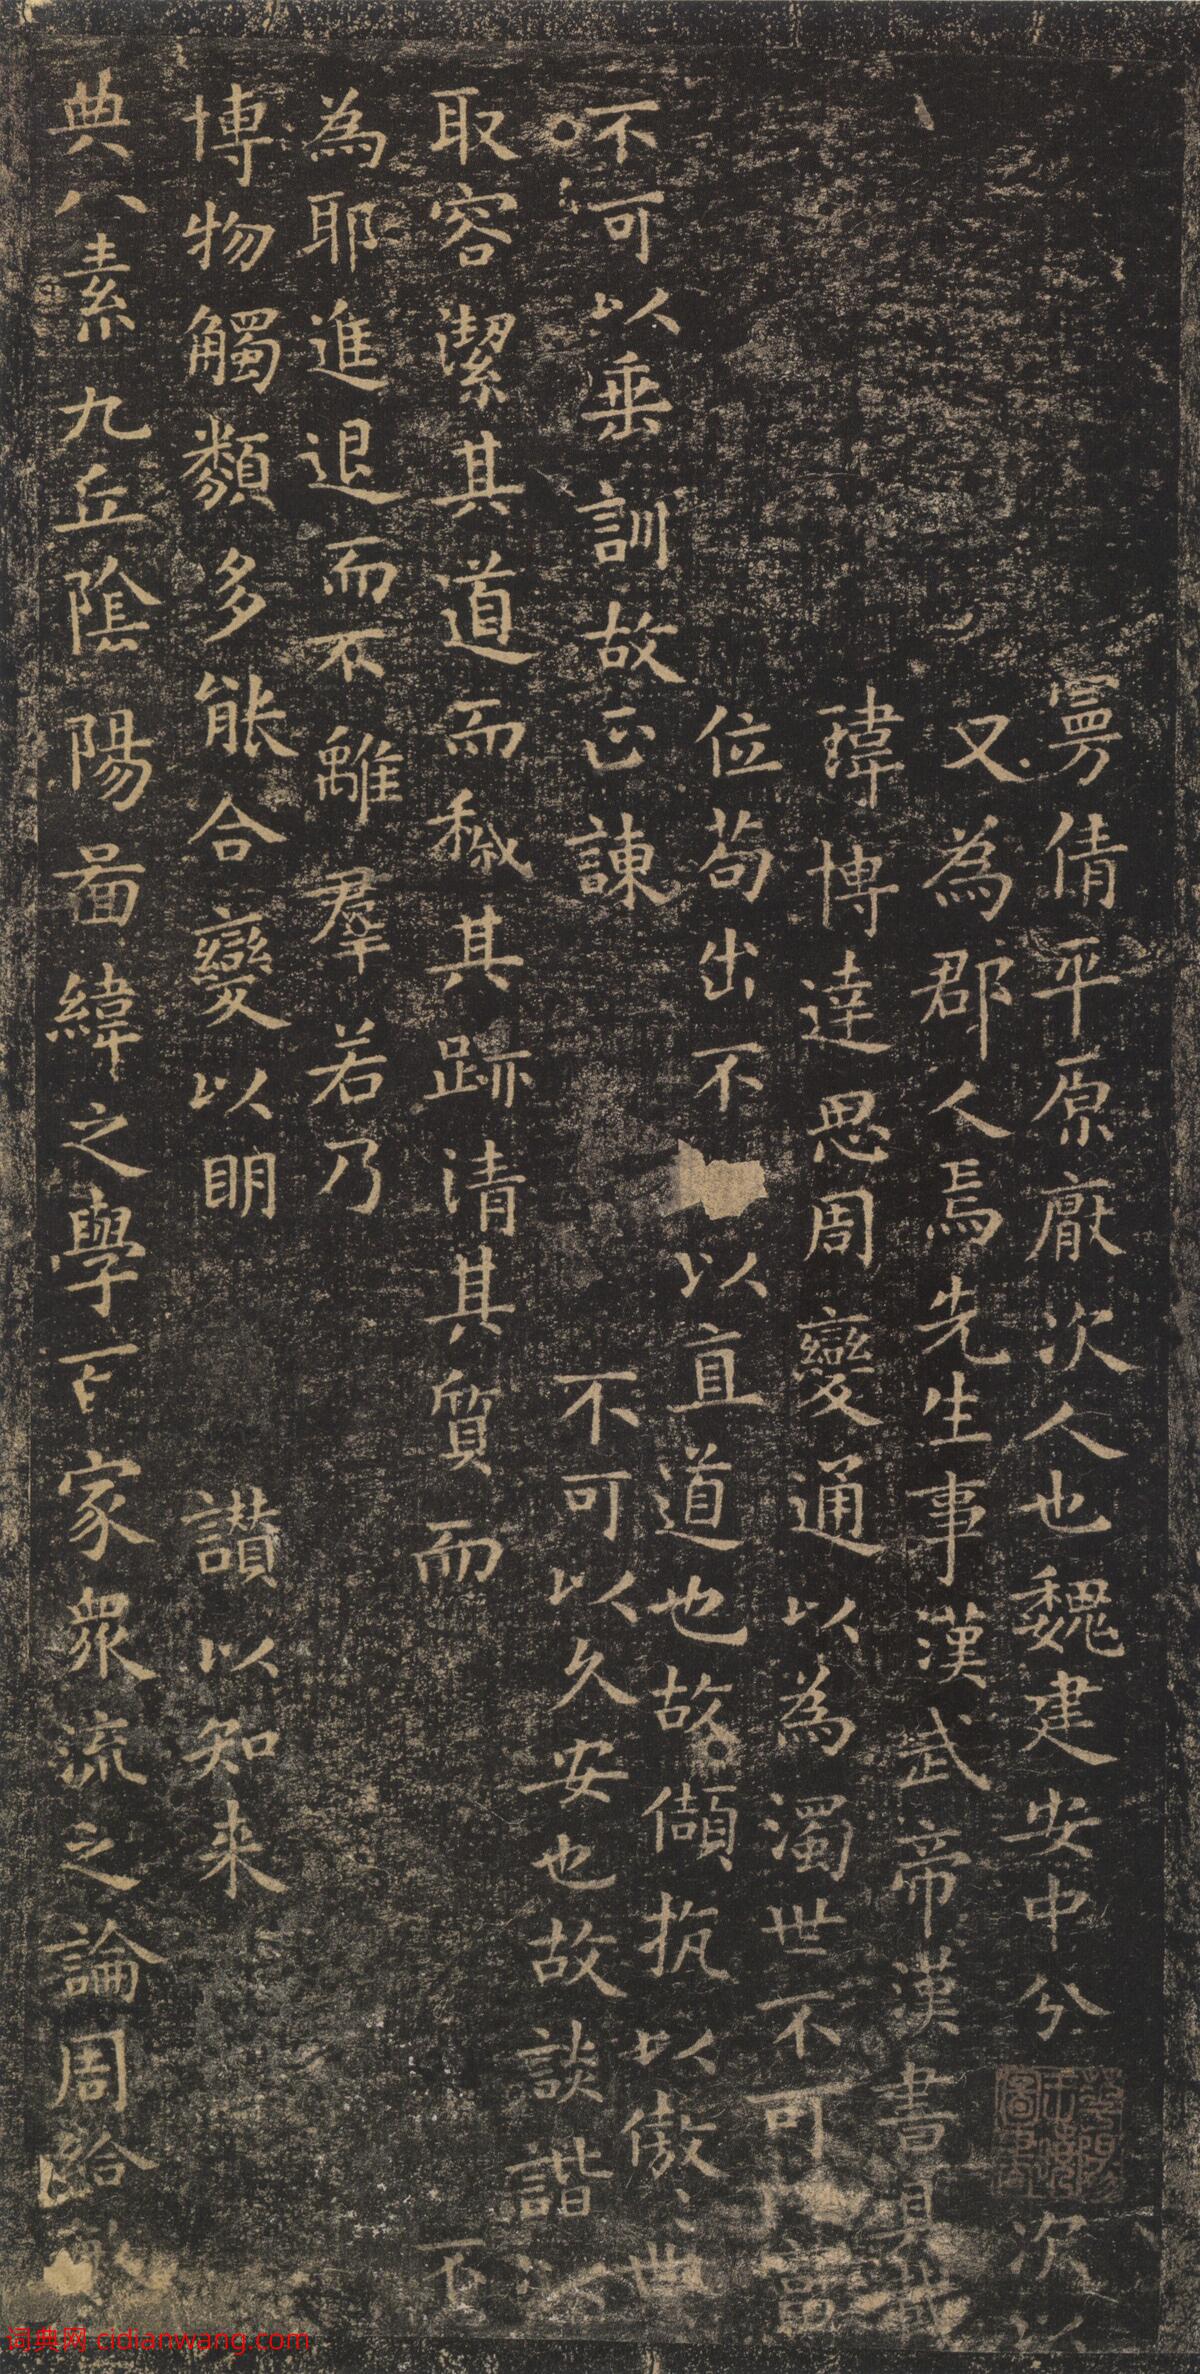 曼倩平原厭次人也魏建安中兮次以
又為郡人焉先生事漢武帝漢書具載
瑋博達思周變通以為濁世不可富
位苟出不以直道也故頡抗以傲〻世
不可以垂訓故正諫不可以久安也故談諧
取容潔其道而穢其跡清其質而
為耶進退而不離羣若乃
博物觸類多能合變以明讃以知来
典八素九丘陰陽啚緯之學百家衆流之論周給敏
词典网 cidianwang.com